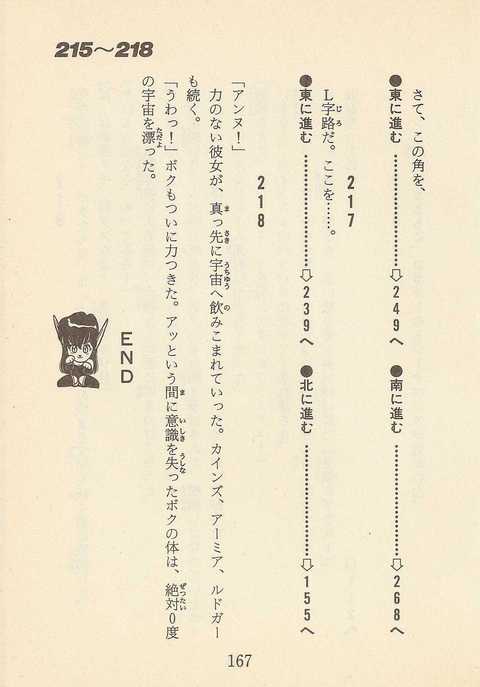 215〜218
さて、この角を、
●東に進む…………⇨249へ ●南に進む…………⇨268へ
217
L字路だ。ここを……。
●東に進む…………⇨239へ ●北に進む…………⇨155へ
218
「アンヌ!」
力のない彼女が、真っ先に宇宙へ飲みこまれていった。カインズ、アーミア、ルドガー
も続く。
「うわっ!」ボクもついに力つきた。アッという間に意識を失ったボクの体は、絶対0度
の宇宙を漂った。
END
167